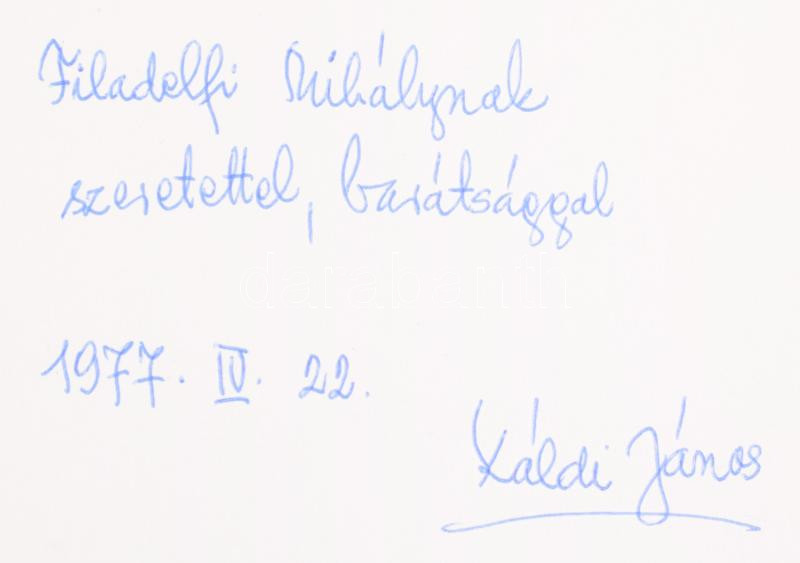 Filadelfi Mihálynak
szeretettel, barátsággal
darabanth
1977. IV. 22.
Káldi János